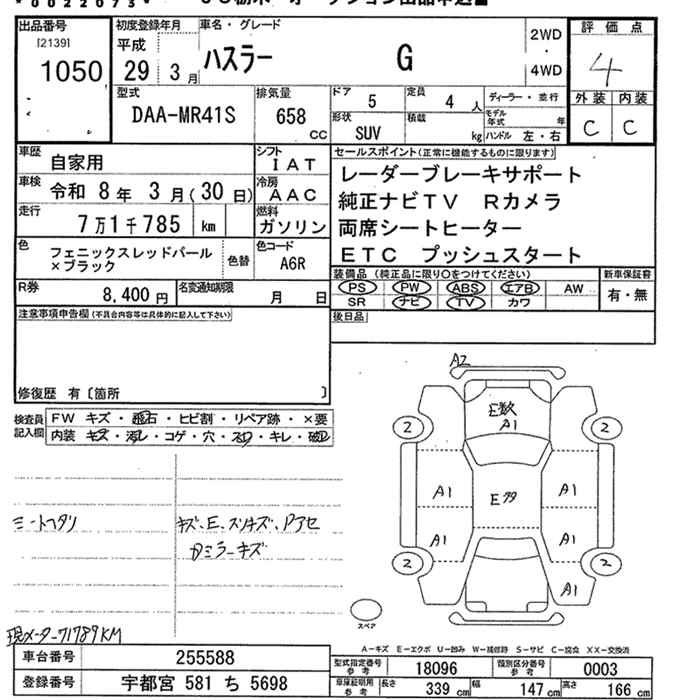 *0022073*
出品番号
[2139]
1050
初度登録年月
平成
29 3月
車名・グレード
ハスラー G
2WD
・
4WD
評価点
4
外装 内装
C C
型式
DAA-MR41S
排気量
658
CC
ドア 5
定員 4 人
ディーラー・並行
形状
SUV
積載 kg
モデル年式 年
ハンドル 左・右
車歴 自家用
シフト IAT
車検 令和 8年 3月(30日)
冷房 AAC
走行 7万1千785 km
燃料 ガソリン
色 フェニックスレッドパール
×ブラック
色替
色コード
A6R
R券 8,400円
名変通知期限 月 日
セールスポイント(正常に機能するものに限ります)
レーダーブレーキサポート
純正ナビTV Rカメラ
両席シートヒーター
ETC プッシュスタート
装備品(純正品に限り○をつけてください)
PS PW ABS エアB AW
SR ナビ TV カワ
新車保証書
有・無
後日品
注意事項申告欄(不具合内容等は具体的に記入して下さい)
修復歴 有〔箇所 〕
検査員記入欄
FW キズ・飛石・ヒビ割・リペア跡・×要
内装 キズ・汚レ・コゲ・穴・スレ・キレ・破レ
シートヘタリ
キズ、E、スリキズ、Pアセ
Dミラーキズ
現メーター71789KM
A2
E数
A1
2 2
A1 E多 A1
A1 A1
2 2
A1
スペア
A-キズ E-エクボ U-凹み W-補修跡 S-サビ C-腐食 XX-交換済
車台番号 255588
登録番号 宇都宮 581 ち 5698
型式指定番号参考 18096
類別区分番号参考 0003
車庫証明用参考 長さ 339 cm 幅 147 cm 高さ 166 cm